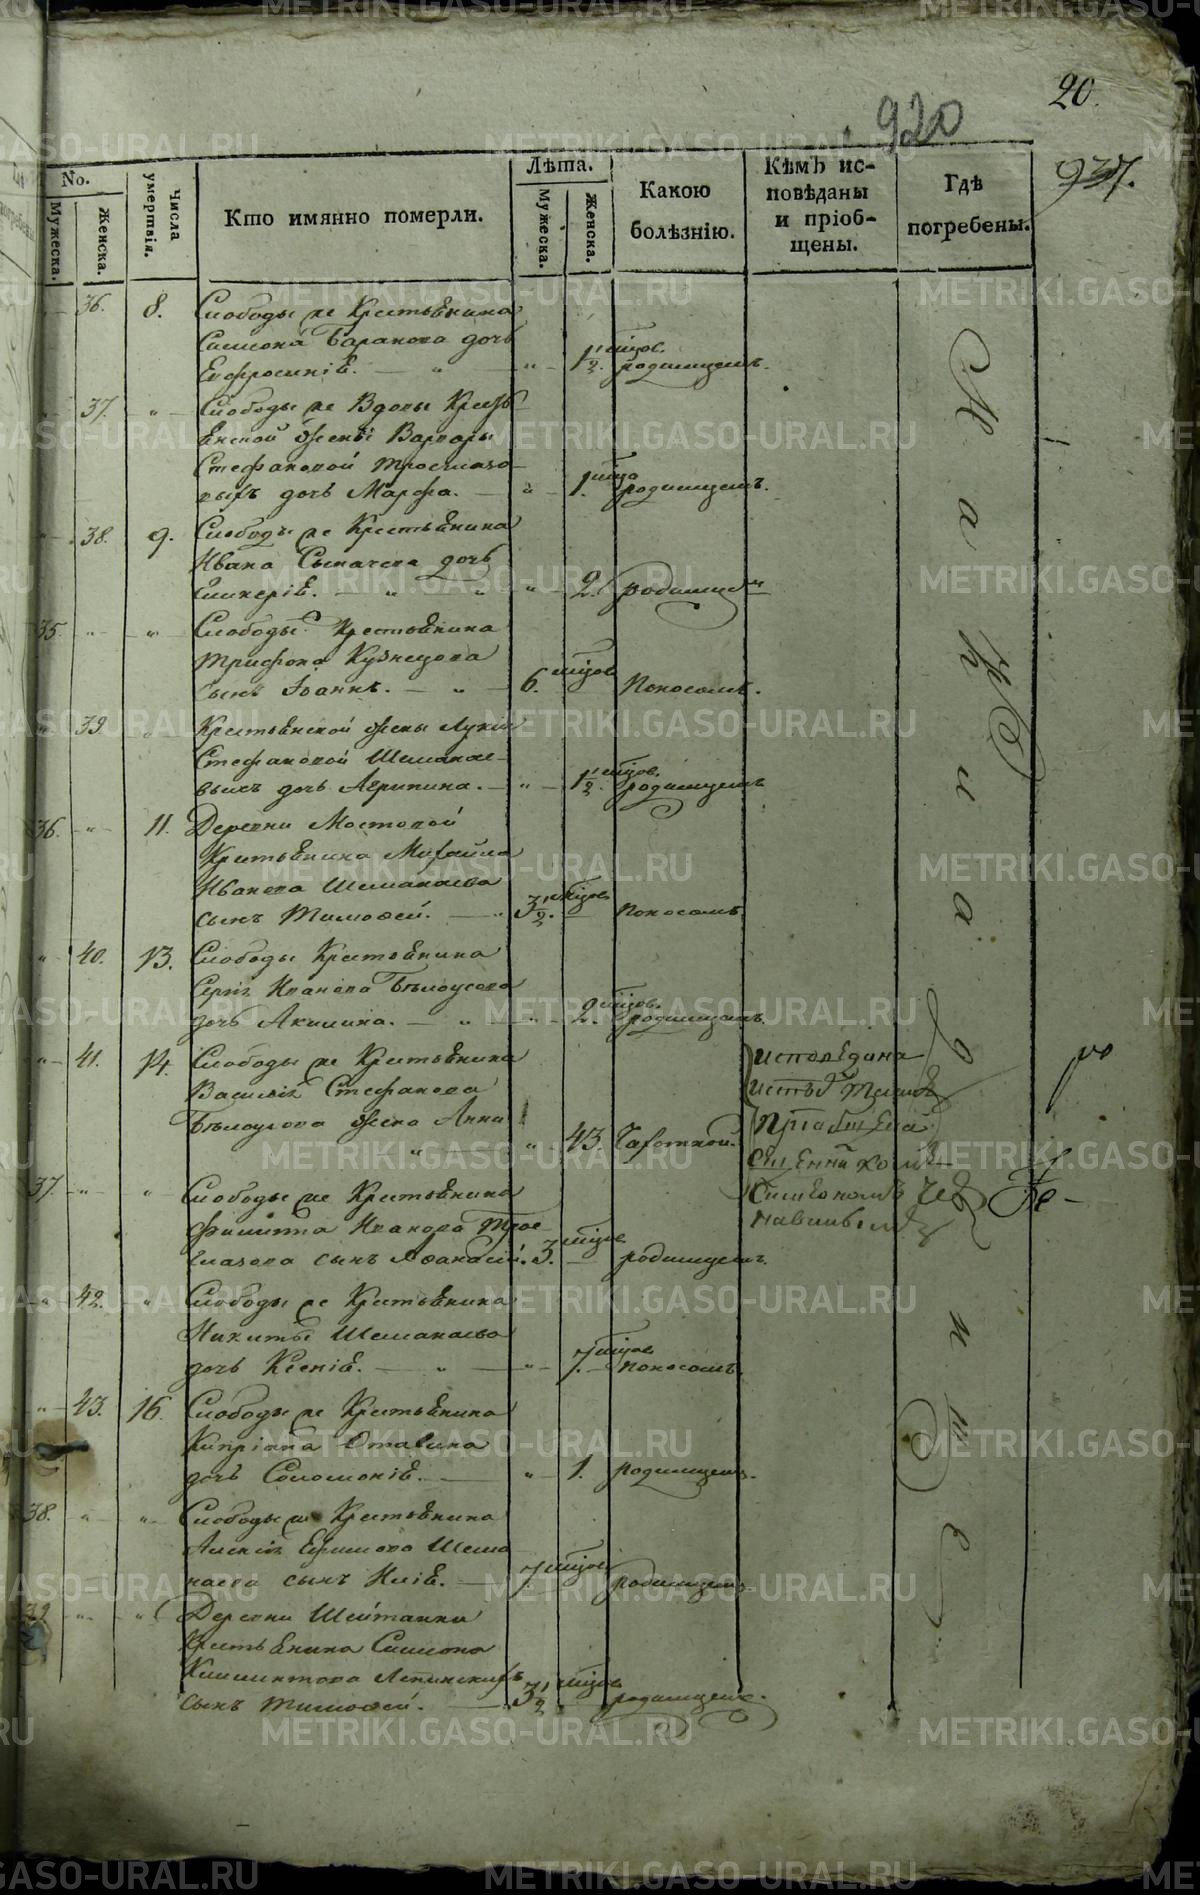 20.
920
937.
No.
Мужеска.
Женска.
Числа умертвія.
Кто имянно померли.
Лѣта.
Мужеска.
Женска.
Какою болѣзнію.
Кѣмъ исповѣданы и пріобщены.
Гдѣ погребены.
36. 8. Слободы же Крестьянина
Симеона Баранова дочь
Евфросинія. — " — " — 1½ мцов. родимцемъ.
37. " Слободы же Вдовы Кресть-
янской Жены Варвары
Стефановой
дочь Марфа. — " — 1. мца родимцемъ.
38. 9. Слободы же Крестьянина
Ивана дочь
Гликерія. — " " " — 2. родимцемъ
35. " " Слободы Крестьянина
Трифона Кузнецова
сынъ Іоаннъ. — " — 6. мцов Поносомъ.
39. " Крестьянской жены
Стефановой Шемонае-
выхъ дочь Агрипина. — " — 1½ мцов. родимцемъ
36. " 11. Деревни Мостовой
Крестьянина Михайла
Иванова Шеманаева
сынъ Тимофей. — " 3½. мцов поносомъ.
" 40. 13. Слободы Крестьянина
Сергія Иванова Бѣлоусова
дочь Акилина. — " — " — 2. мцов. родимцемъ.
" 41. 14. Слободы же Крестьянина
Василія Стефанова
Бѣлоусова жена Анна
" — " 43. Чахоткой.
исповѣдана
пріобщена
священникомъ
Симеономъ
37. " " Слободы же Крестьянина
Филиппа Иванова
сынъ Афанасій. 3. мцов — родимцемъ.
" 42. " Слободы же Крестьянина
Никиты Шеманаева
дочь Ксенія. — " — " — 7. мцов поносомъ.
" 43. 16. Слободы же Крестьянина
Кипріана
дочь Соломонія. — " — 1. родимцемъ.
38. " " Слободы же Крестьянина
Алексія Ефимова Шема-
наева сынъ Илія. — 7. мцов. родимцемъ.
39. " " Деревни Шейтанки
Крестьянина Симеона
сынъ Тимофей. — " 3½ мцов родимцемъ.
На кладбищѣ
METRIKI.GASO-URAL.RU